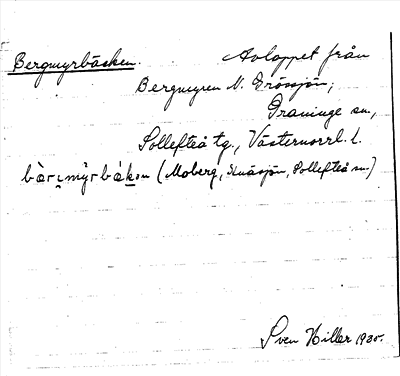 Bergmyrbäcken. Avloppet från
Bergmyren N. Grössjön;
Graninge sn,
Sollefteå tg., Västernorrl. l.
(Moberg, Knäsjön, Sollefteå sn)
Sven Hiller 1935.